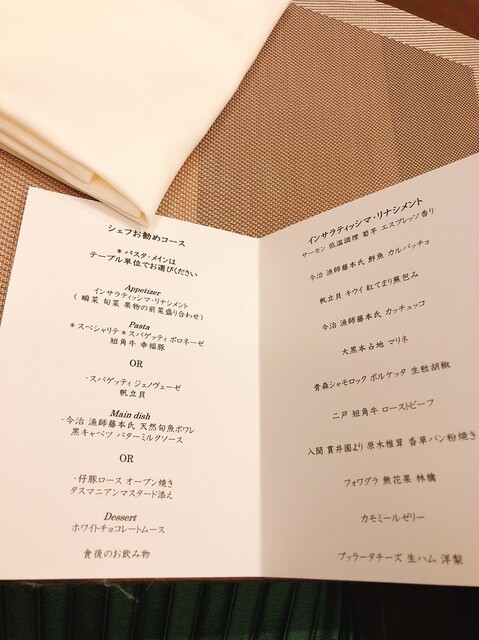 シェフお勧めコース
＊パスタ・メインは
テーブル単位でお選びください
Appetizer
インサラティッシマ・リナシメント
( 瞬菜 旬菜 果物の前菜盛り合わせ)
Pasta
＊スペシャリテ＊スパゲッティ ボロネーゼ
短角牛 幸福豚
OR
・スパゲッティ ジェノヴェーゼ
帆立貝
Main dish
・今治 漁師藤本氏 天然旬魚ポワレ
黒キャベツ バターミルクソース
OR
・仔豚ロース オーブン焼き
タスマニアンマスタード添え
Dessert
ホワイトチョコレートムース
食後のお飲み物
インサラティッシマ・リナシメント
サーモン 低温調理 菊芋 エスプレッソ香り
今治 漁師藤本氏 鮮魚 カルパッチョ
帆立貝 キウイ 紅てまり蕪包み
今治 漁師藤本氏 カッチュッコ
大黒本占地 マリネ
青森シャモロック ポルケッタ 生粒胡椒
二戸 短角牛 ローストビーフ
入間 貫井園より 原木椎茸 香草パン粉焼き
フォワグラ 無花果 林檎
カモミールゼリー
ブッラータチーズ 生ハム 洋梨